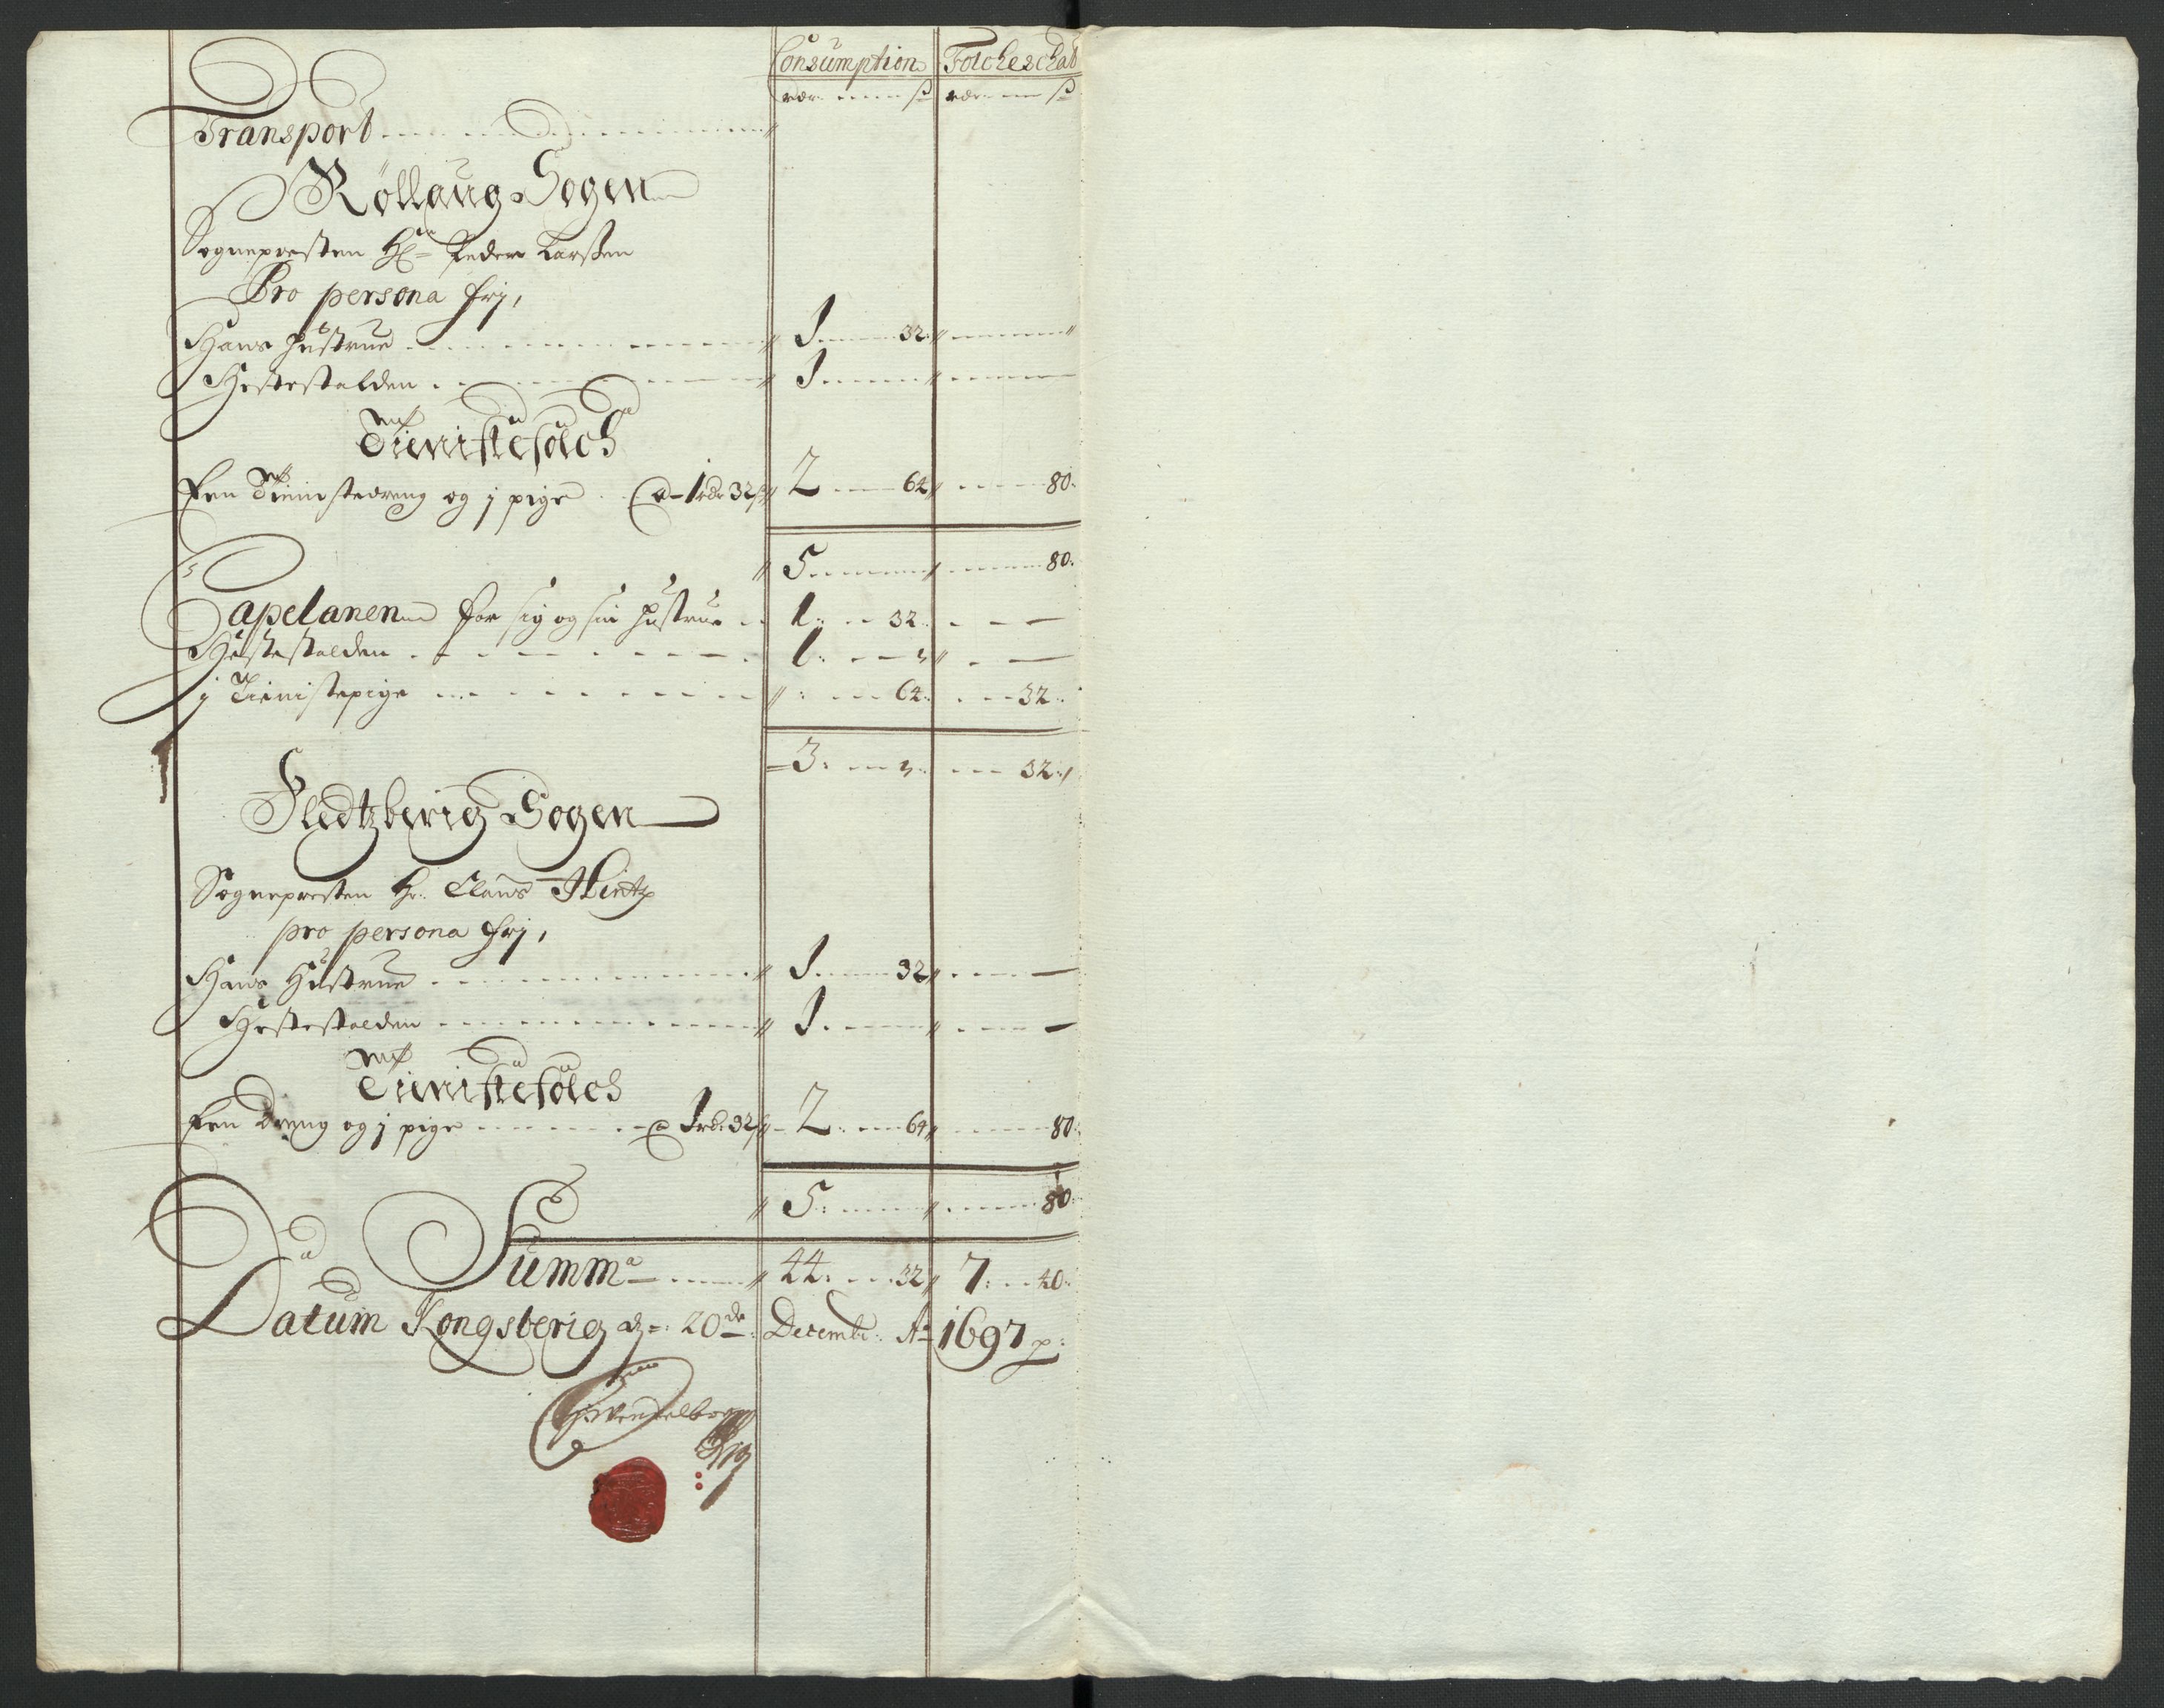 Consumption Folcheschat
rdr ß rdr ß
Transport
Rollaug Sogen
Sognepresten Hr Peder Larssen
Pro persona frj,
Hans Hustrue 1 32
Hestestalden 1
Tienistefolch
Een Tienistedreng og j pige a 1 rdr 32 ß 2 64 80
5 80
Capelanen for sig og sin Hustrue 1 32
Hestestalden 1
j Tienistepige 64 32
3 32
Fledtzberig Sogen
Sognepresten Hr. Claus Wintz
pro persona frj,
Hans Hustrue 1 32
Hestestalden 1
Tienistefolch
Een Dreng og j pige a 1 rdr 32 ß 2 64 80
5 80
Summa 44 32 7 40
Datum Kongsberig d: 20de Decembr: Ao 1697